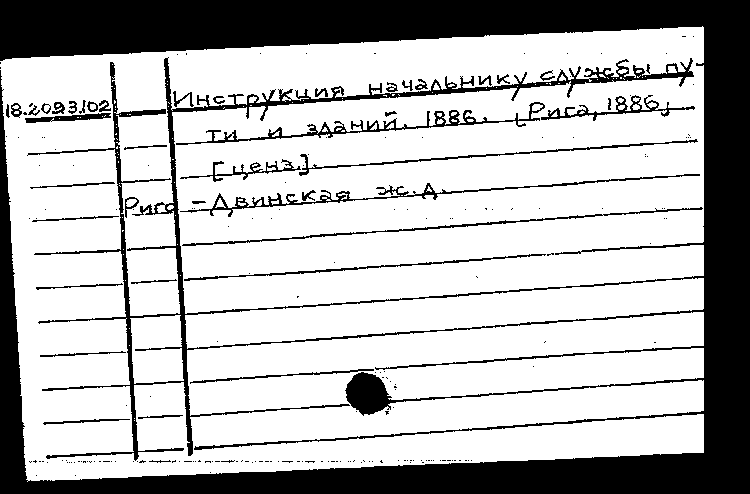 18.2093.102 Инструкция начальнику службы пу-
ти и зданий. 1886. [Рига, 1886,
[ценз.].
Рига - Двинская ж.д.